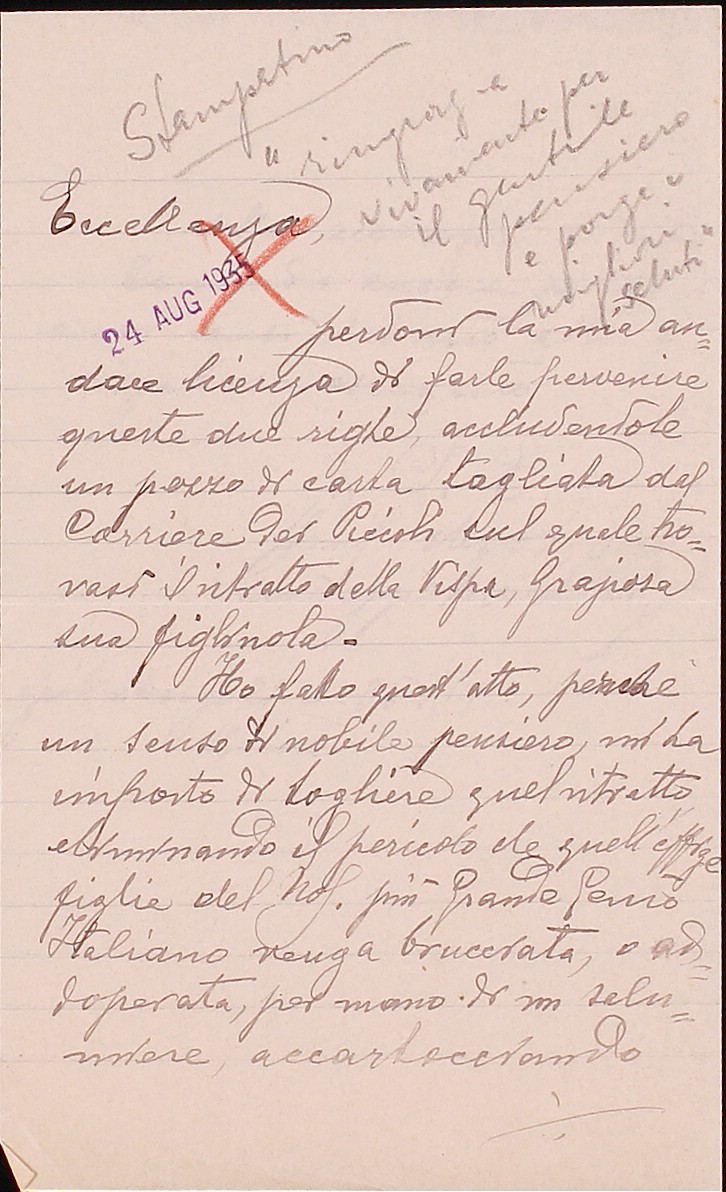 Stampatino
" ringraz-a
vivamente per
il gentile
pensiero
e porge i
migliori
saluti"
Eccellenza,
24 AUG 1935
perdoni la mia au=
dace licenza di farle pervenire
queste due righe, accludendole
un pezzo di carta tagliata dal
Corriere dei Piccoli sul quale tro-
vasi il ritratto della Vispa, Graziosa
sua figliuola.-
Ho fatto quest'atto, perchè
un senso di nobile pensiero, mi ha
imposto di togliere quel ritratto,
eliminando il pericolo che quell'effige
figlia del più Grande Genio
Italiano venga bruciata, o ad=
doperata, per mano di un salu=
miere, accartocciando